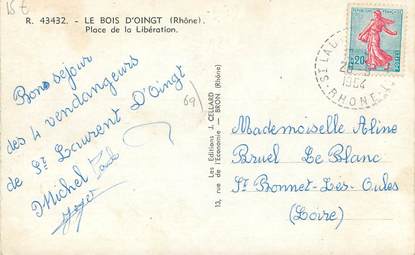 15€
R. 43432. - LE BOIS D'OINGT (Rhône).
Place de la Libération.
Bon séjour
des 4 vendangeurs
de St Laurent D'Oingt
Michel
69)
13, rue de l'Economie — BRON (Rhône)
Les Editions J. CELLARD
0,20
RHONE
1964
Mademoiselle Aline
Bruel Le Blanc
St Bonnet-Les-Oules
(Loire)